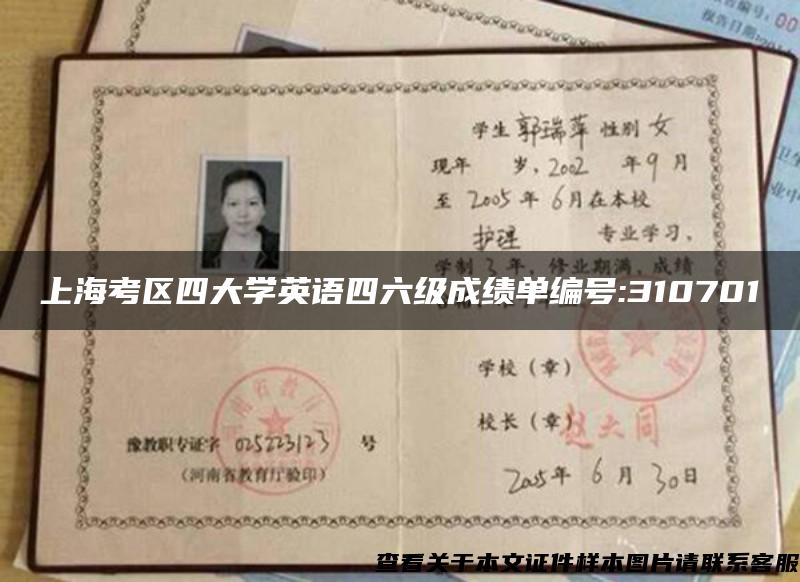 告编号:00
报告日期:201
学生 郭瑞萍 性别 女
现年 岁,2002 年 9 月
至 2005 年 6 月在本校
护理 专业学习,
学制 3 年 修业期满,成绩
上海考区四大学英语四六级成绩单编号:310701
学校（章）
校长（章）赵大同
豫教职专证字 025223123 号
（河南省教育厅验印）
2005 年 6 月 30 日
查看关于本文证件样本图片请联系客服